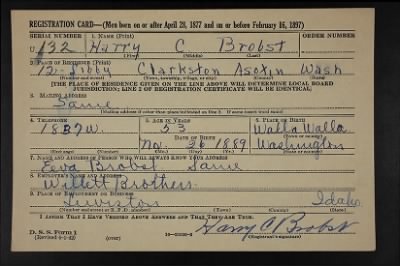 REGISTRATION CARD—(Men born on or after April 28, 1877 and on or before February 16, 1897)
SERIAL NUMBER 1. NAME (Print) ORDER NUMBER
U 132 Harry C Brobst
(First) (Middle) (Last)
2. PLACE OF RESIDENCE (Print)
12- Libby Clarkston Asotin Wash
(Number and street) (Town, township, village, or city) (County) (State)
[THE PLACE OF RESIDENCE GIVEN ON THE LINE ABOVE WILL DETERMINE LOCAL BOARD
JURISDICTION; LINE 2 OF REGISTRATION CERTIFICATE WILL BE IDENTICAL]
3. MAILING ADDRESS
Same
[Mailing address if other than place indicated on line 2. If same insert word same]
4. TELEPHONE 5. AGE IN YEARS 6. PLACE OF BIRTH
1837W. 53 Walla Walla
DATE OF BIRTH (Town or county)
Nov. 26 1889 Washington
(Exchange) (Number) (Mo.) (Day) (Yr.) (State or country)
7. NAME AND ADDRESS OF PERSON WHO WILL ALWAYS KNOW YOUR ADDRESS
Eva Brobst Same
8. EMPLOYER'S NAME AND ADDRESS
Willett Brothers
9. PLACE OF EMPLOYMENT OR BUSINESS
Lewiston Idaho
(Number and street or R. F. D. number) (Town) (County) (State)
I AFFIRM THAT I HAVE VERIFIED ABOVE ANSWERS AND THAT THEY ARE TRUE.
D. S. S. Form 1
(Revised 4-1-42) (over) Harry C Brobst
(Registrant's signature)